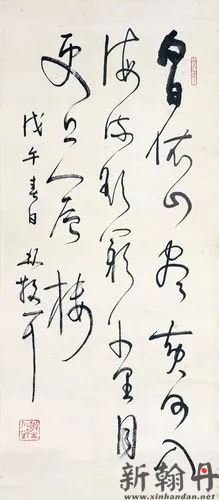 白日依山尽黄河入
海流欲窮千里目
更上一层楼
戊午春日林散耳
新翰丹
www.xinhandan.net